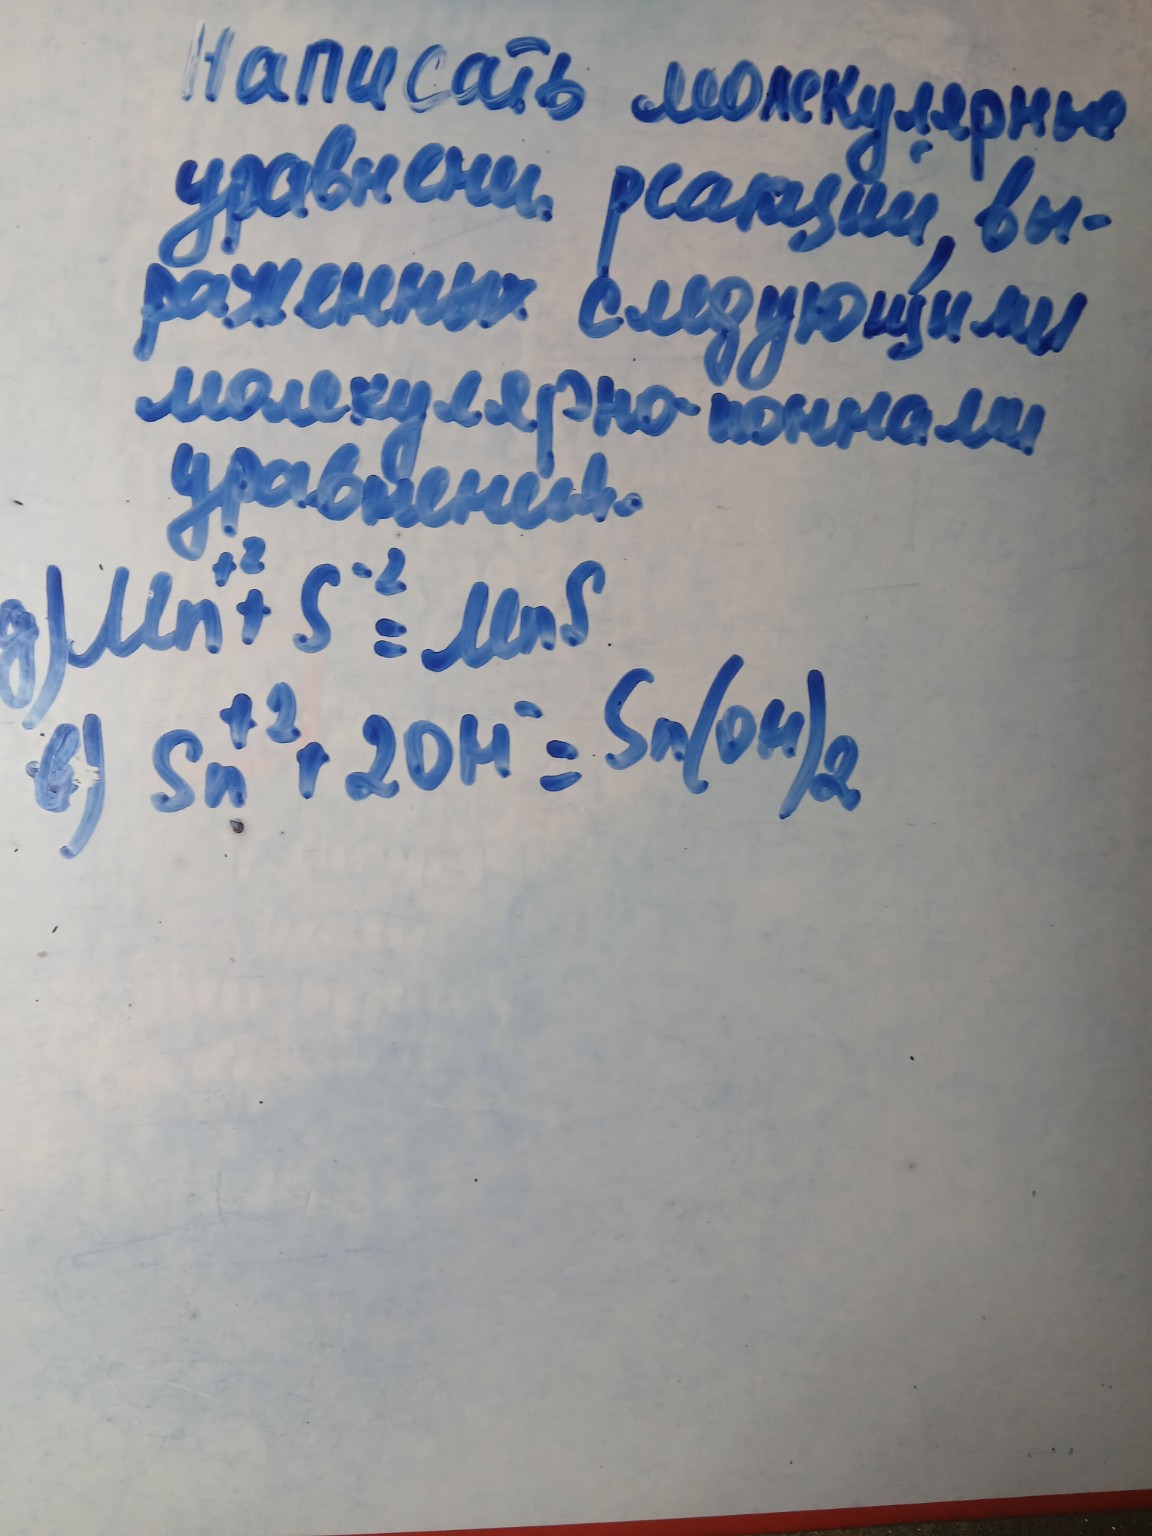 Написать молекулярные
уравнени. реакции, вы-
раженных следующими
молекулярно-ионнами
уравнения.
д) Mn⁺² + S⁻² = MnS
в) Sn⁺² + 2OH⁻ = Sn(OH)₂